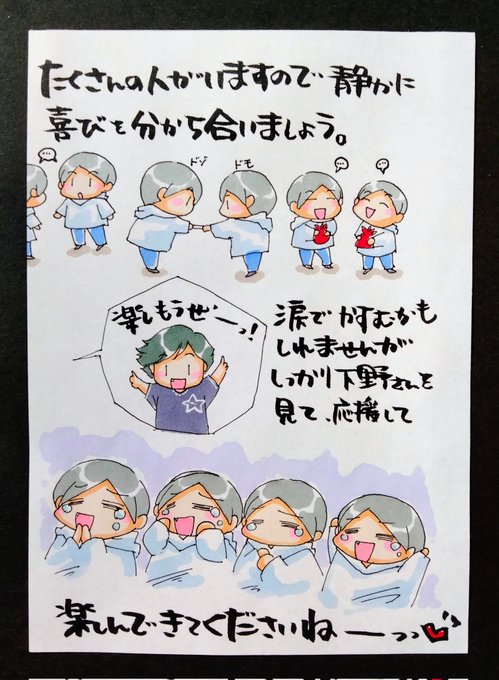 たくさんの人がいますので静かに
喜びを分かち合いましょう。
ドゾ
ドモ
楽しもうぜーっ!
涙でかすむかも
しれませんが
しっかり下野さんを
見て、応援して
楽しんできてくださいねーっっ